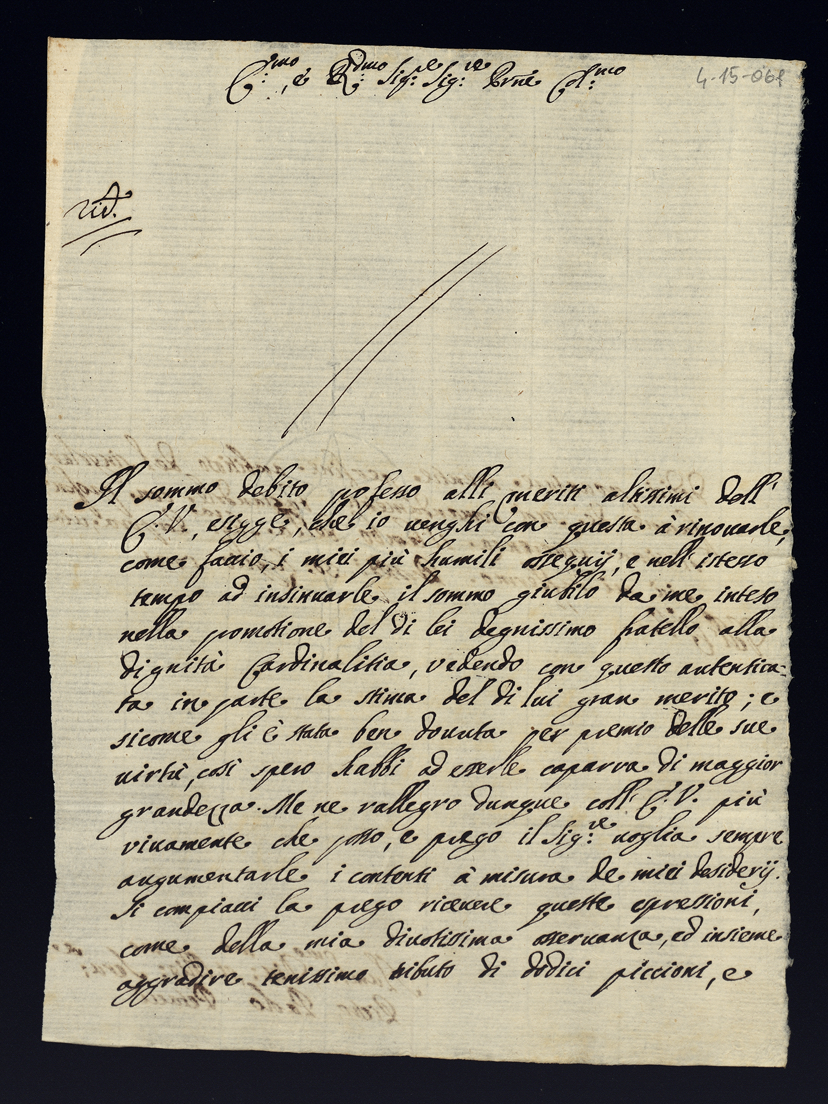 E.mo, e R.dmo Sig.re Sig.re Prne Col.mo
4-15-061
rid.
Il sommo debito pofesso alli meriti altissimi dell'
E. V., esigge, che io venghi con questa à rinovarle,
come faccio, i miei più humili osseguij, e nell'istesso
tempo ad insinuarle il sommo giubilo da me inteso
nella promotione del di lei degnissimo fratello alla
dignità Cardinalitia, vedendo con questo autentica=
ta in parte la stima del di lui gran merito; e
sicome gli è stata ben douuta per premio delle sue
virtù, così spero habbi ad esserle caparra di maggior
grandezza. Me ne rallegro dunque coll'E. V. più
vivamente che posso, e prego il Sig.re voglia sempre
augumentarle i contenti à misura de miei desiderij.
Si compiacci la prego riceuere queste espressioni,
come della mia diuotissima osseruanza, ed insieme
aggradire tenissimo tributo di dodici piccioni, e